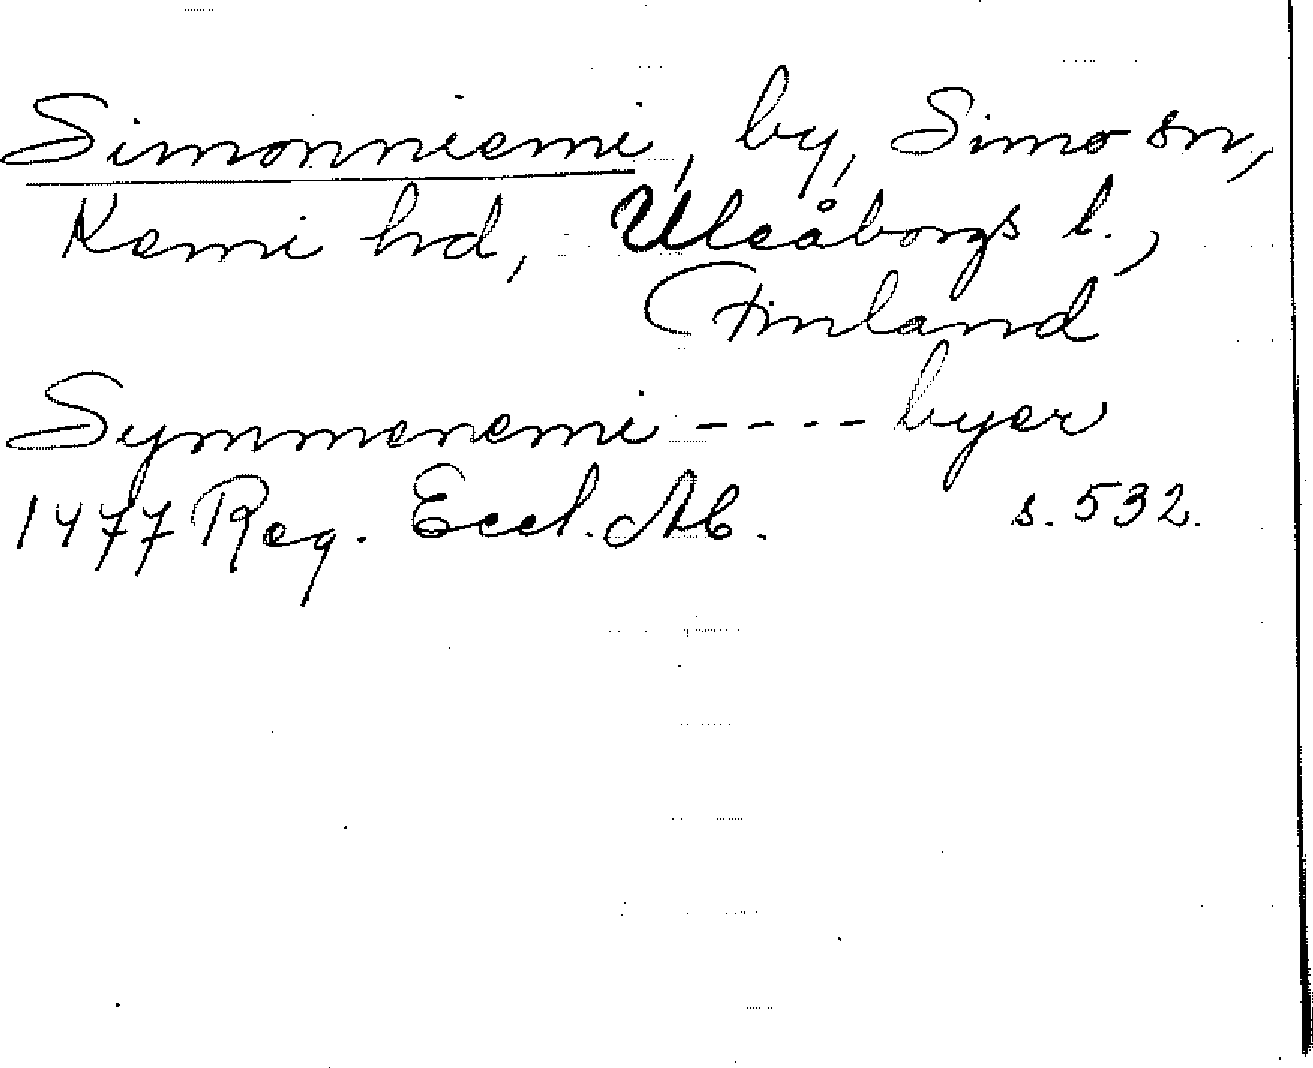 Simonniemi, by, Simo sn,
Kemi hd, Uleåborgs l.,
Finland
Symmenemi - - - - byer
1477 Reg. Eccl. Ab. s. 532.